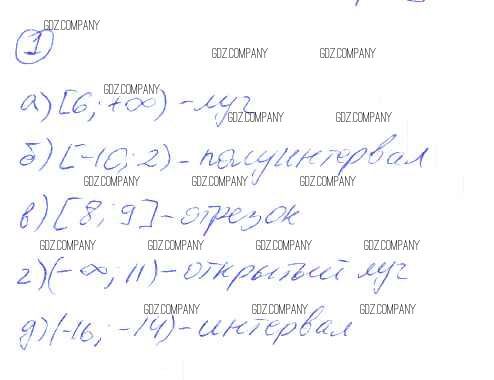 GDZ.COMPANY
1
GDZ.COMPANY GDZ.COMPANY
GDZ.COMPANY
а) [6; +∞) - луч
GDZ.COMPANY GDZ.COMPANY
б) [-10; 2) - полуинтервал
GDZ.COMPANY GDZ.COMPANY GDZ.COMPANY
в) [8; 9] - отрезок
GDZ.COMPANY GDZ.COMPANY GDZ.COMPANY GDZ.COMPANY
г) (-∞; 11) - открытый луч
GDZ.COMPANY GDZ.COMPANY GDZ.COMPANY
д) (-16; -14) - интервал